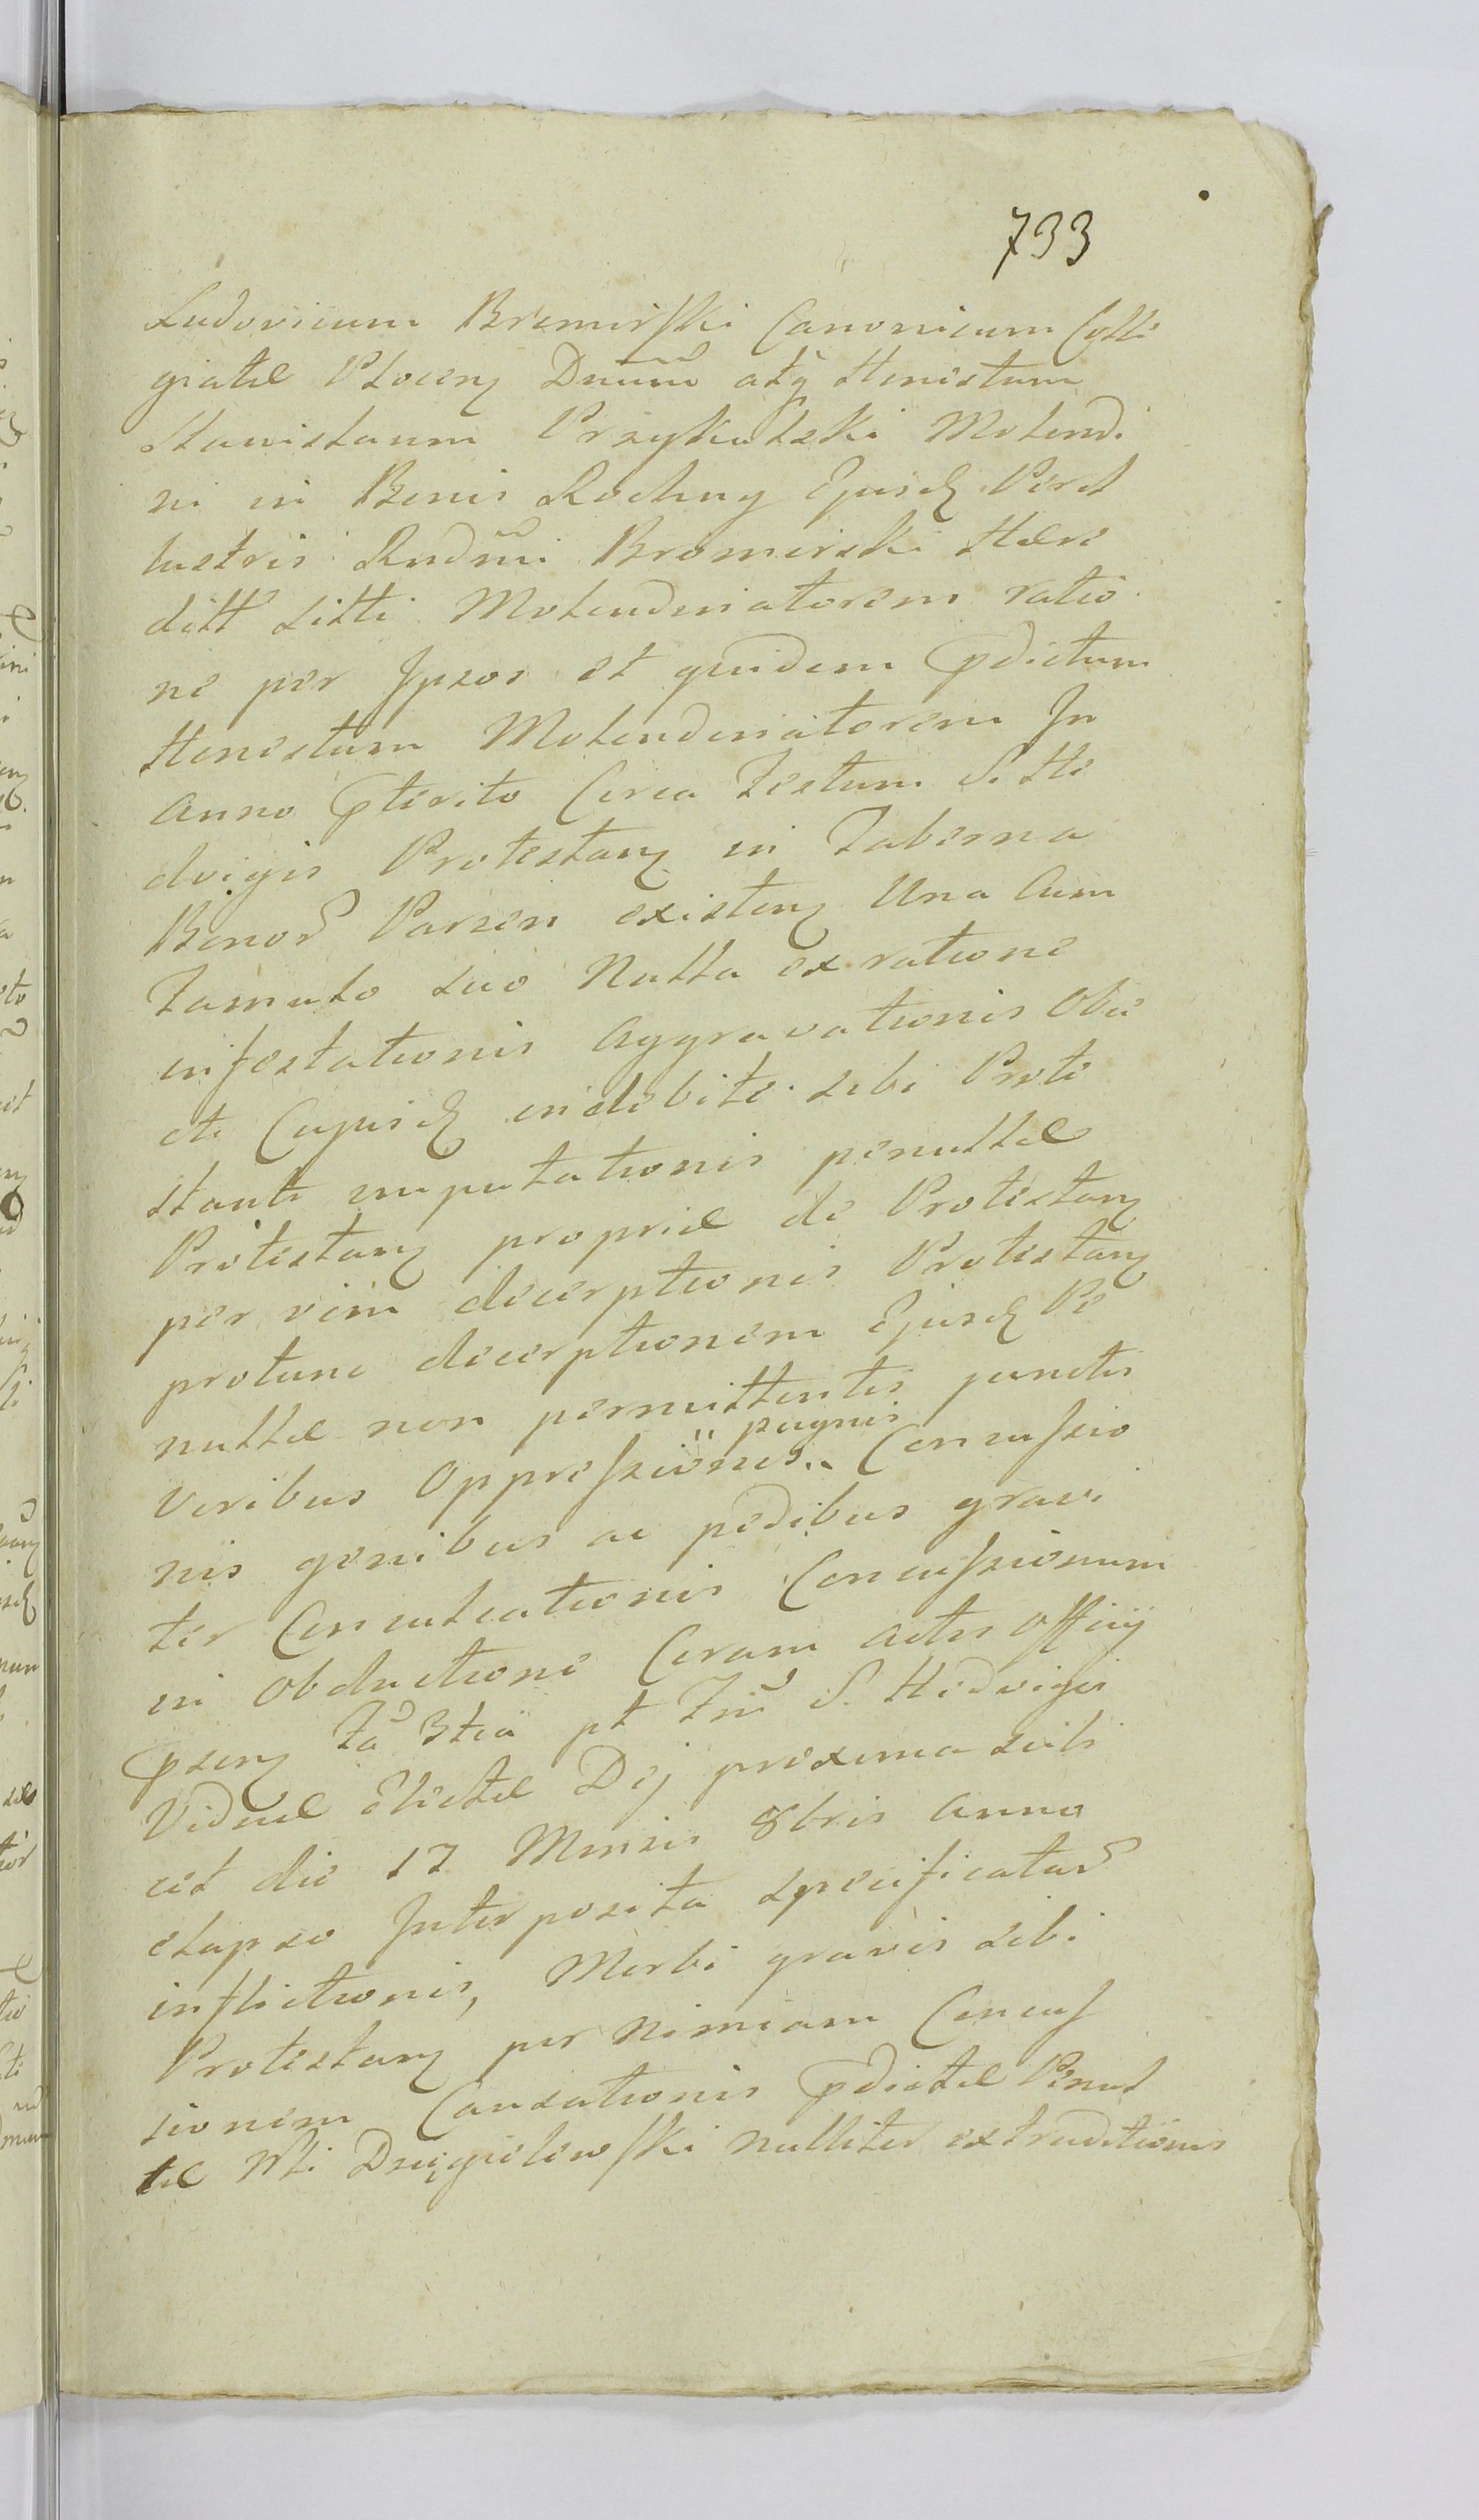 733
Ludovicum Bromirski Canonicum Colle
giatae Plocen Dnum atq Honestum
Stanislaum Przykulski Molendi
ni in Bonis Rochny Ejusd Peril
lustris Rndmi Bromirski Haere
ditt sitti Molendinatorem ratio
ne per Ipsos et quidem pdictum
Honestum Molendinatorem In
Anno pterito Circa Festum S. He
dvigis Protestan in Taberna
Bonor Parzen existen Una Cum
Famulo suo Nulla ex ratione
infestationis aggravationis Obje
cti Cujusd indebite sibi Prote
stanti imputationis penullae
Protestan propriae de Protestan
per vim decerptionis Protestan
protunc decerptionem Ejusd Pe
nullae non permittentis junctis
viribus Oppressionis " pugnis Concussio
nis genibus ac pedibus gravi
ter Conculcationis Concussionum
in obductione Coram actis Officij
psen fa 3tia pt Fm S. Hedvigis
Viduae Electae Dej proxima scili
cet die 17 Mensis 8bris Anno
elapso Interposita specificatar
inflictionis, Morbi gravis sibi
Protestan per nimiam Concus
sionem Causationis pdictae Penul
lae Nli Dzięgielewski nulliter extraditionis